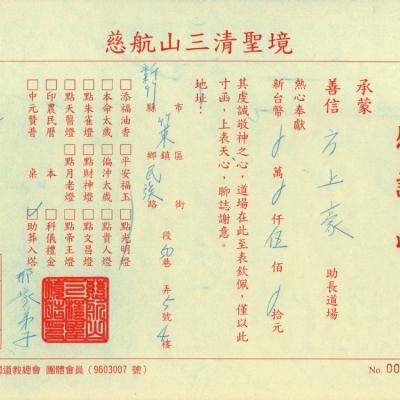 慈航山三清聖境
承蒙
善信 方上豪 助長道場
熱心奉獻
新台幣 萬 仟伍佰 拾元
其虔誠敬神之心，道場在此至表欽佩，僅以此
寸函，上表天心，聊誌謝意。
地址：新竹縣市 竹東鄉鎮區 民族路街 段50巷 弄5號4樓
□添福油香 □平安福玉 □點光明燈
□本命太歲 □偏沖太歲 □點貴人燈
□點朱雀燈 □點財神燈 □點文昌燈
□點天醫燈 □點月老燈 □點帝王燈
□印農民曆 本 □科儀禮金
□中元贊普 桌 □助葬入塔
道教總會 團體會員（9603007 號）
No. 00